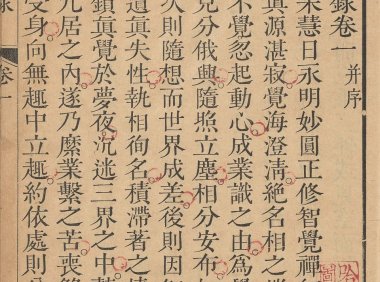 錄卷一 并序
宋慧日永明妙圓正修智覺禪
眞源湛寂覺海澄清絕名相之
不覺忽起動心成業識之由爲
見分俄興隨照立塵相分安布
次則隨想而世界成差後則因
遺眞失性執相徇名積滯著之
鎖眞覺於夢夜沉迷三界之中
九居之內遂乃縻業繫之苦喪
受身向無趣中立趣約依處則
錄 卷一
哈
圖